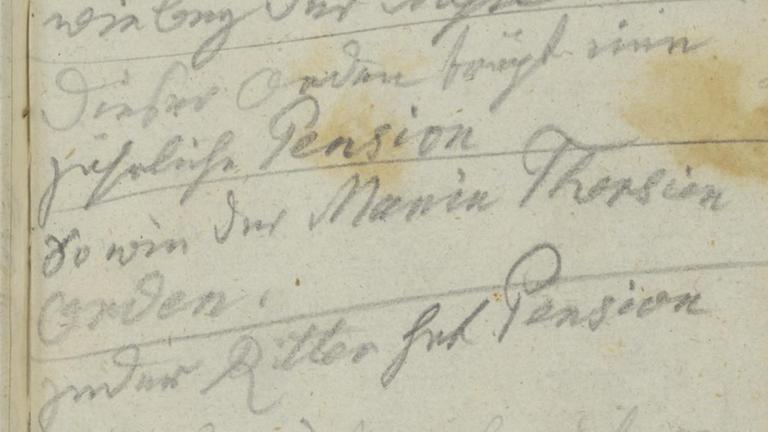 Dieser Orden trägt eine
jährliche Pension
So wie der Maria Thersien
Orden.
jeder Ritter hat Pension